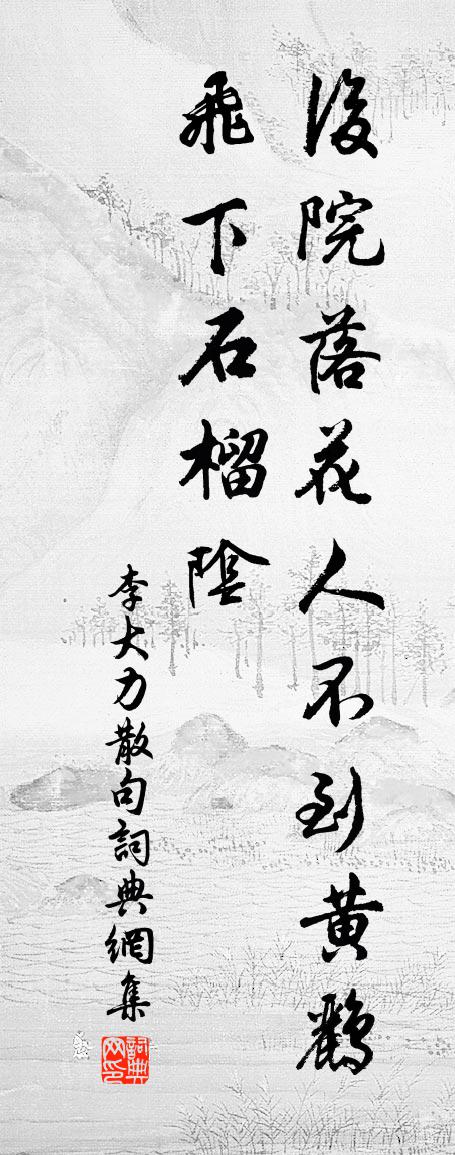 後院落花人不到黄鸝
飛下石榴陰
李大力散句詞典網集
詞典
网印